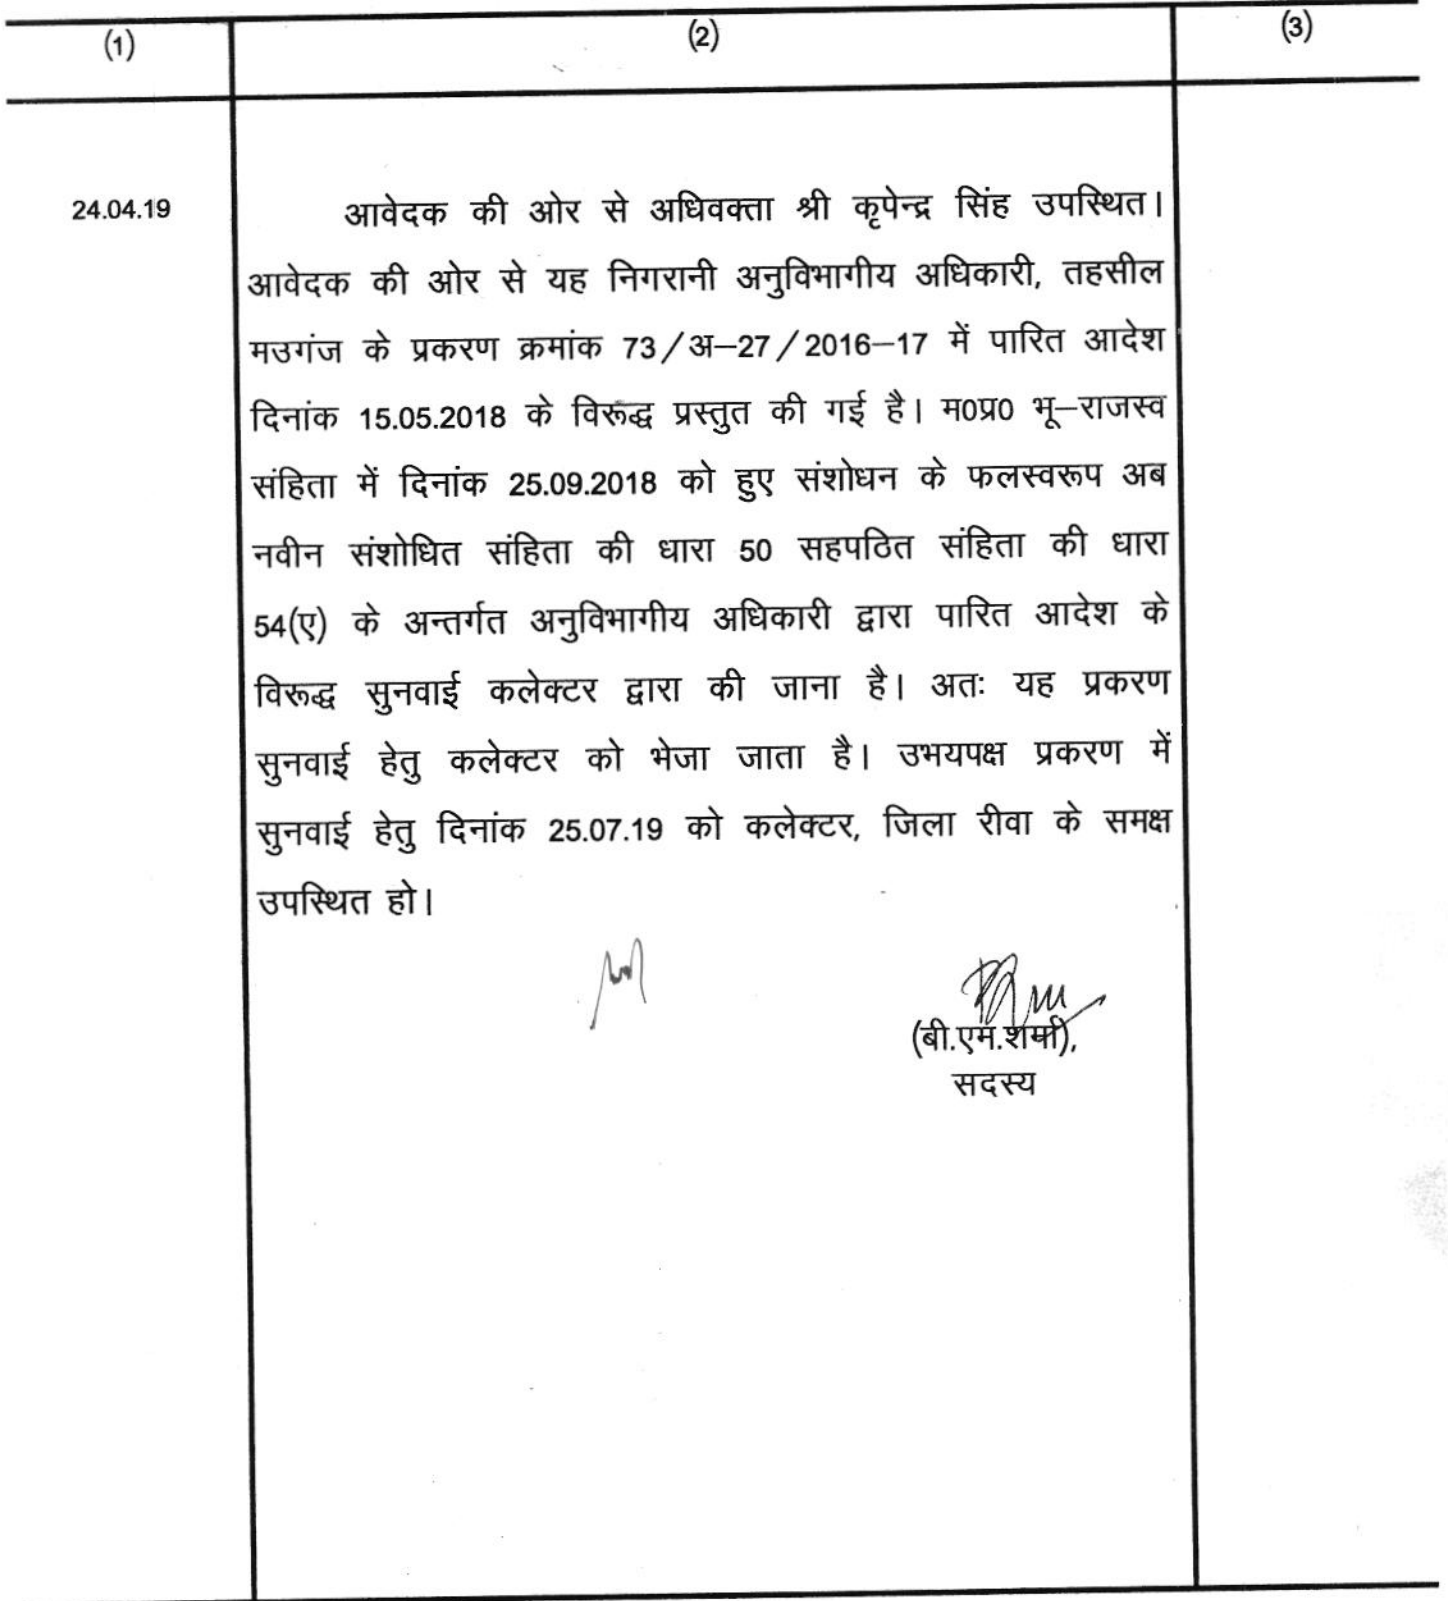 (1) (2) (3)
24.04.19 आवेदक की ओर से अधिवक्ता श्री कृपेन्द्र सिंह उपस्थित।
आवेदक की ओर से यह निगरानी अनुविभागीय अधिकारी, तहसील
मउगंज के प्रकरण क्रमांक 73/अ–27/2016–17 में पारित आदेश
दिनांक 15.05.2018 के विरूद्ध प्रस्तुत की गई है। म0प्र0 भू–राजस्व
संहिता में दिनांक 25.09.2018 को हुए संशोधन के फलस्वरूप अब
नवीन संशोधित संहिता की धारा 50 सहपठित संहिता की धारा
54(ए) के अन्तर्गत अनुविभागीय अधिकारी द्वारा पारित आदेश के
विरूद्ध सुनवाई कलेक्टर द्वारा की जाना है। अतः यह प्रकरण
सुनवाई हेतु कलेक्टर को भेजा जाता है। उभयपक्ष प्रकरण में
सुनवाई हेतु दिनांक 25.07.19 को कलेक्टर, जिला रीवा के समक्ष
उपस्थित हो।
(बी.एम.शर्मा),
सदस्य